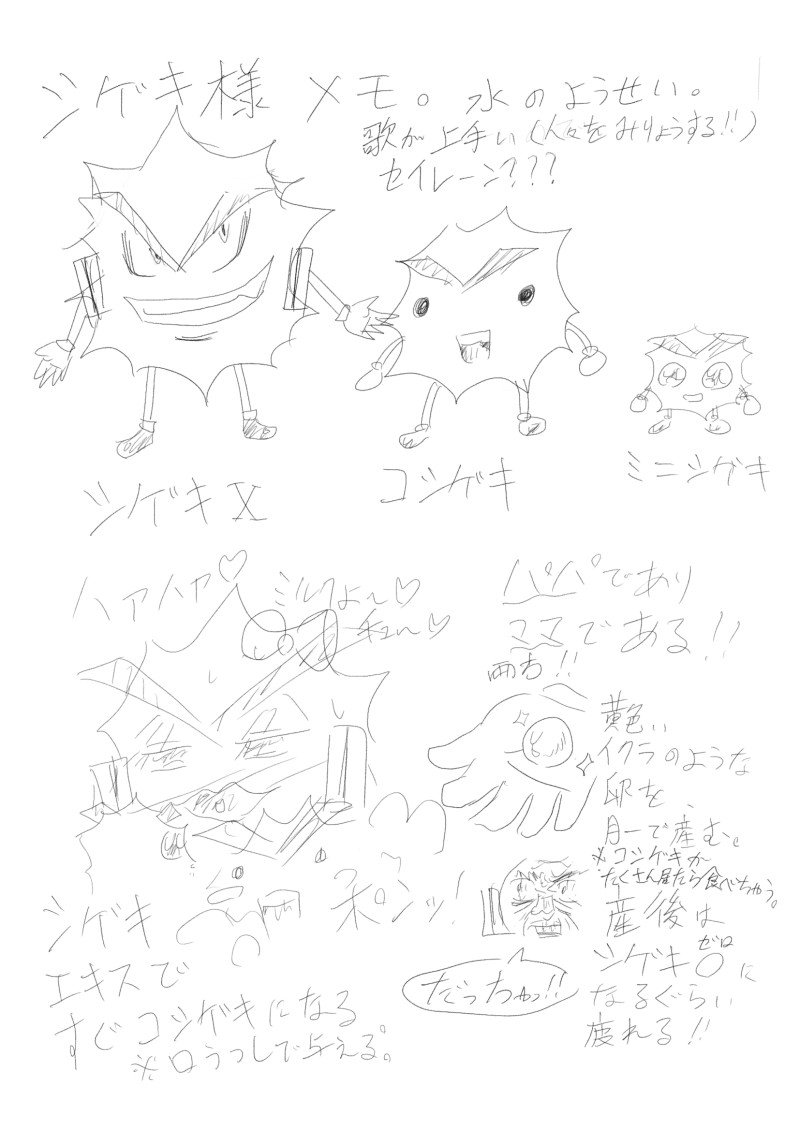 シゲキ様メモ。水のようせい。
歌が上手い(人々をみりょうする!!)
セイレーン???
シゲキX
コシゲキ
ミニシゲキ
ハァハァ♡
ミルクよ〜♡
チュ〜♡
パパであり
ママである!!
両方!!
黄色い
イクラのような
卵を、
月一で産む。
※コシゲキが
たくさん居たら食べちゃう。
産後は
シゲキ0ゼロに
なるぐらい
疲れる!!
だっちゅっ!!
ポンッ!
シゲキ
エキスで
すぐコシゲキになる
※口うつしで与える。